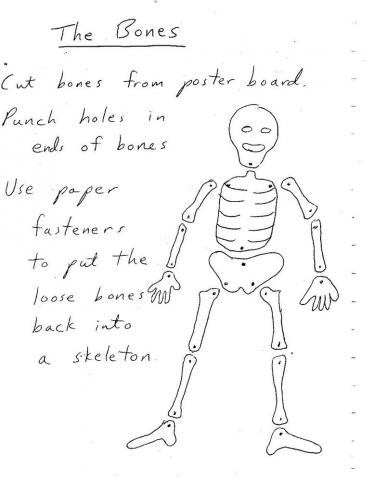 The Bones
Cut bones from poster board.
Punch holes in
ends of bones
Use paper
fasteners
to put the
loose bones
back into
a skeleton.